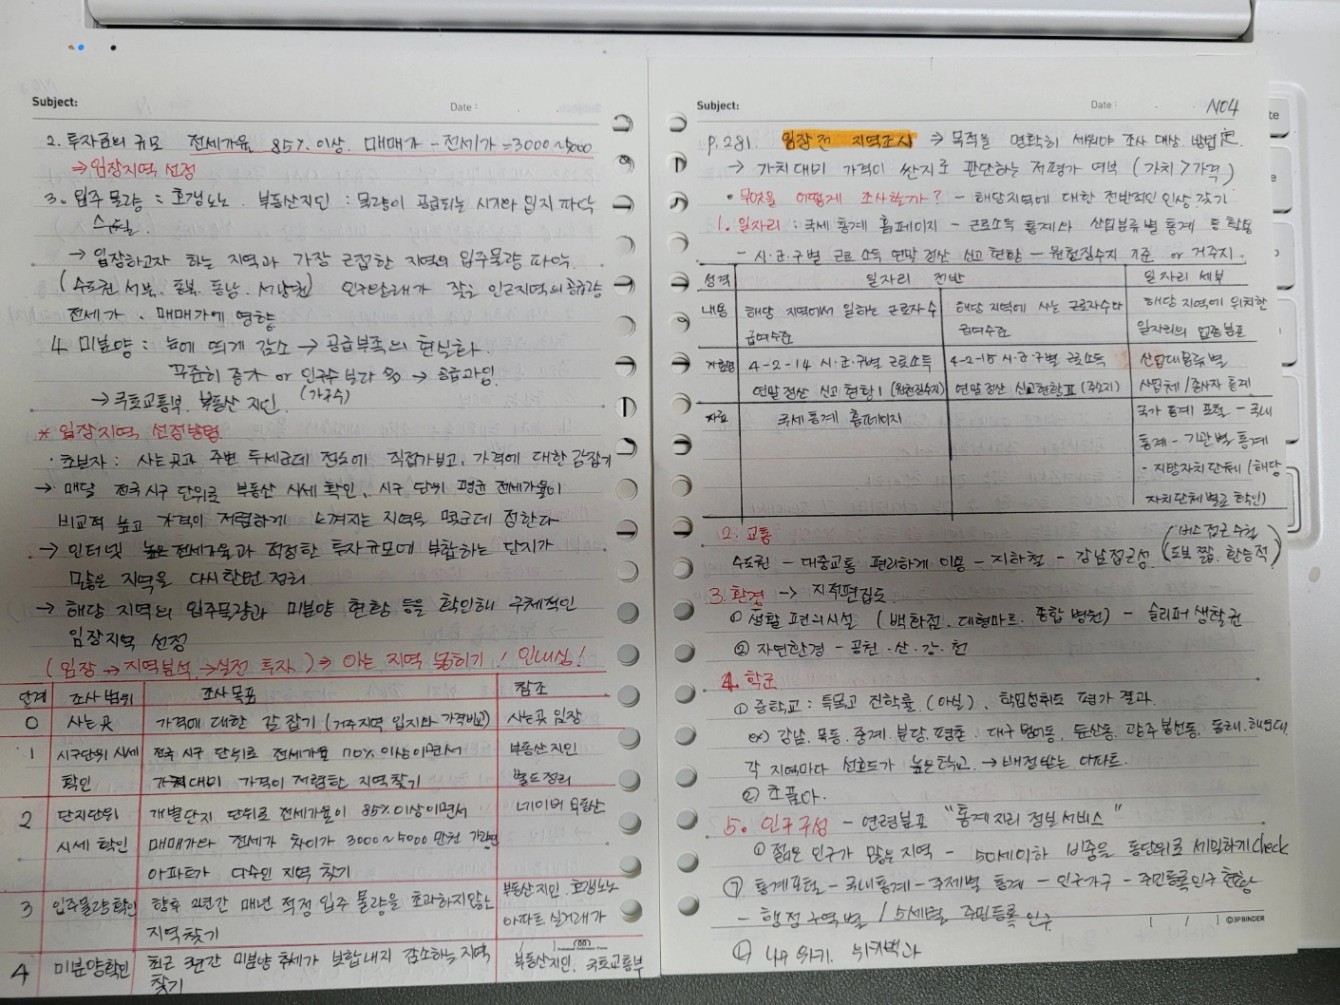 Subject:
Date :
2. 투자금의 규모 전세가율 85% 이상. 매매가 - 전세가 = 3000~5000
⇒ 임장지역 선정
3. 입주 물량 : 호갱노노. 부동산지인 : 물량이 공급되는 시기와 입지 파악
수월.
→ 임장하고자 하는 지역과 가장 근접한 지역의 입주물량 파악.
(수도권 서북. 동북. 동남. 서남권) 인구 많은 인근지역의 공급량
전세가. 매매가에 영향
4. 미분양 : 눈에 띄게 감소 → 공급부족의 현실화.
꾸준히 증가 or 인구수보다 多 → 공급과잉.
(가구수)
→ 국토교통부. 부동산 지인.
* 임장지역 선정방법
· 초보자 : 사는곳과 주변 두세군데 정도에 직접가보고, 가격에 대한 감잡기
→ 매달 전국 시구 단위로 부동산 시세 확인, 시구 단위 평균 전세가율이
비교적 높고 가격이 저렴하게 느껴지는 지역을 몇군데 정한다
→ 인터넷 높은 전세가율과 적정한 투자규모에 부합하는 단지가
많은 지역을 다시한번 정리
→ 해당 지역의 입주물량과 미분양 현황 등을 확인해 구체적인
임장지역 선정
(임장 → 지역분석 → 실전 투자) ⇒ 아는 지역 넓히기! 인내심!
단계 조사 범위 조사 목표 참조
0 사는 곳 가격에 대한 감 잡기 (거주지역 입지와 가격비교) 사는곳 임장
1 시구단위 시세 확인 전국 시구 단위로 전세가율 70% 이상이면서 가치대비 가격이 저렴한 지역찾기 부동산지인 별도정리
2 단지단위 시세 확인 개별단지 단위로 전세가율이 85% 이상이면서 매매가와 전세가 차이가 3000~5000만원 가량인 아파트가 다수인 지역 찾기 네이버 부동산
3 입주물량확인 향후 2년간 매년 적정 입주 물량을 초과하지않는 지역찾기 부동산지인, 호갱노노 아파트 실거래가
4 미분양확인 최근 3년간 미분양 추세가 보합내지 감소하는 지역 찾기 부동산지인, 국토교통부
Subject:
Date :
NO4
P.281. 임장 전 지역조사 ⇒ 목적을 명확히 세워야 조사 대상. 방법 定.
→ 가치 대비 가격이 싼지로 판단하는 저평가 여부 (가치 > 가격)
· 무엇을 어떻게 조사할까? - 해당지역에 대한 전반적인 인상 갖기
1. 일자리 : 국세 통계 홈페이지 - 근로소득 통계와 산업분류별 통계 등 활용
- 시·군·구별 근로 소득 연말 정산 신고 현황 - 원천징수지 기준 or 거주지.
성격 일자리 전반 일자리 세부
내용 해당 지역에서 일하는 근로자 수 급여수준 해당 지역에 사는 근로자수와 급여수준 해당 지역에 위치한 일자리의 업종분포
4-2-14 시·군·구별 근로소득 연말 정산 신고 현황 I (원천징수지) 4-2-15 시·군·구별 근로소득 연말 정산 신고현황 II (주소지) 산업대분류별 사업체/종사자 통계
자료 국세 통계 홈페이지 국가 통계 포털 - 국내 통계 - 기관별 통계 - 지방자치단체 (해당 자치단체별로 확인)
2. 교통
수도권 - 대중교통 편리하게 이용 - 지하철 - 강남접근성 (버스 접근 수월 도보 짧. 환승적)
3. 환경 → 지적편집도
① 생활 편의시설 (백화점. 대형마트. 종합 병원) - 슬리퍼 생활권
② 자연환경 - 공원·산·강·천
4. 학군
① 중학교 : 특목고 진학률. (아실), 학업성취도 평가 결과.
ex) 강남. 목동. 중계. 분당. 평촌. 대구 범어동, 둔산동, 광주 봉선동, 동래, 해운대
각 지역마다 선호도가 높은학교. → 배정받는 아파트.
② 초품아.
5. 인구 구성 - 연령분포 "통계 지리 정보 서비스"
① 젊은 인구가 많은 지역 - 50세이하 비중을 동단위로 세밀하게 check
㉠ 통계포털 - 국내통계 - 주제별 통계 - 인구가구 - 주민등록인구 현황
- 행정구역별 / 5세별 주민등록 인구
㉡ 나무 위키. 위키백과
3P BINDER